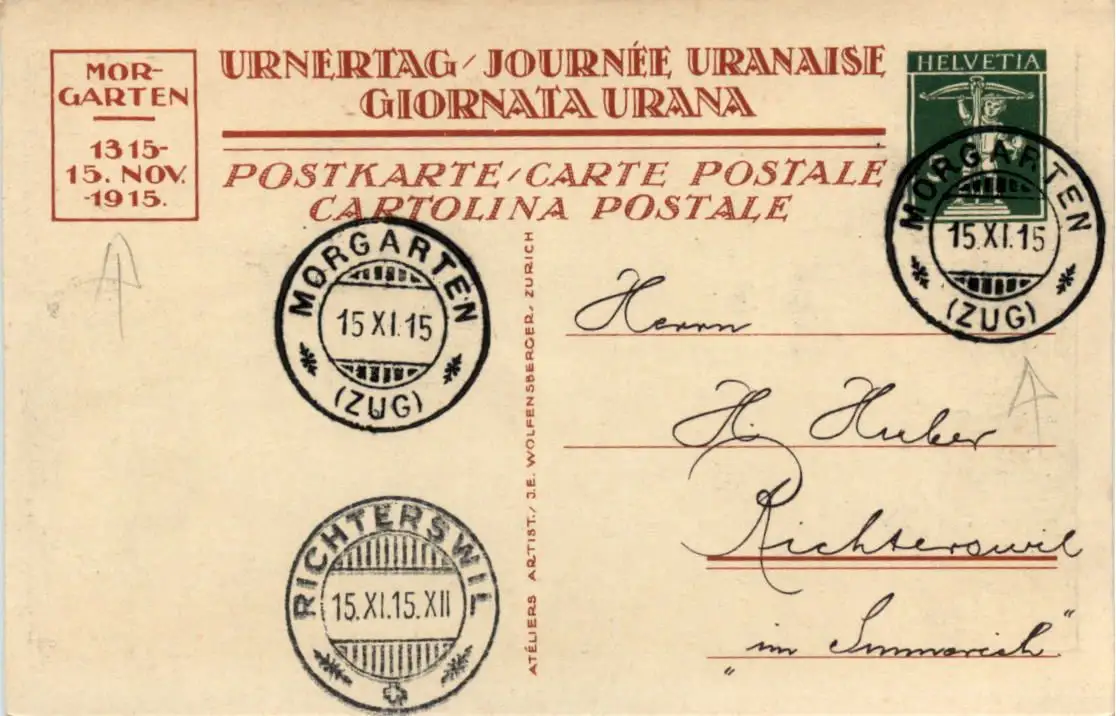 MOR-
GARTEN
1315-
15. NOV.
-1915.
URNERTAG / JOURNÉE URANAISE
GIORNATA URANA
POSTKARTE / CARTE POSTALE
CARTOLINA POSTALE
HELVETIA
MORGARTEN
15.XI.15
(ZUG)
MORGARTEN
15 XI.15
(ZUG)
RICHTERSWIL
15.XI.15.XII
ATÉLIERS ARTIST. / J.E. WOLFENSBERGER, ZURICH
Herrn
H. Huber
Richterswil
"im